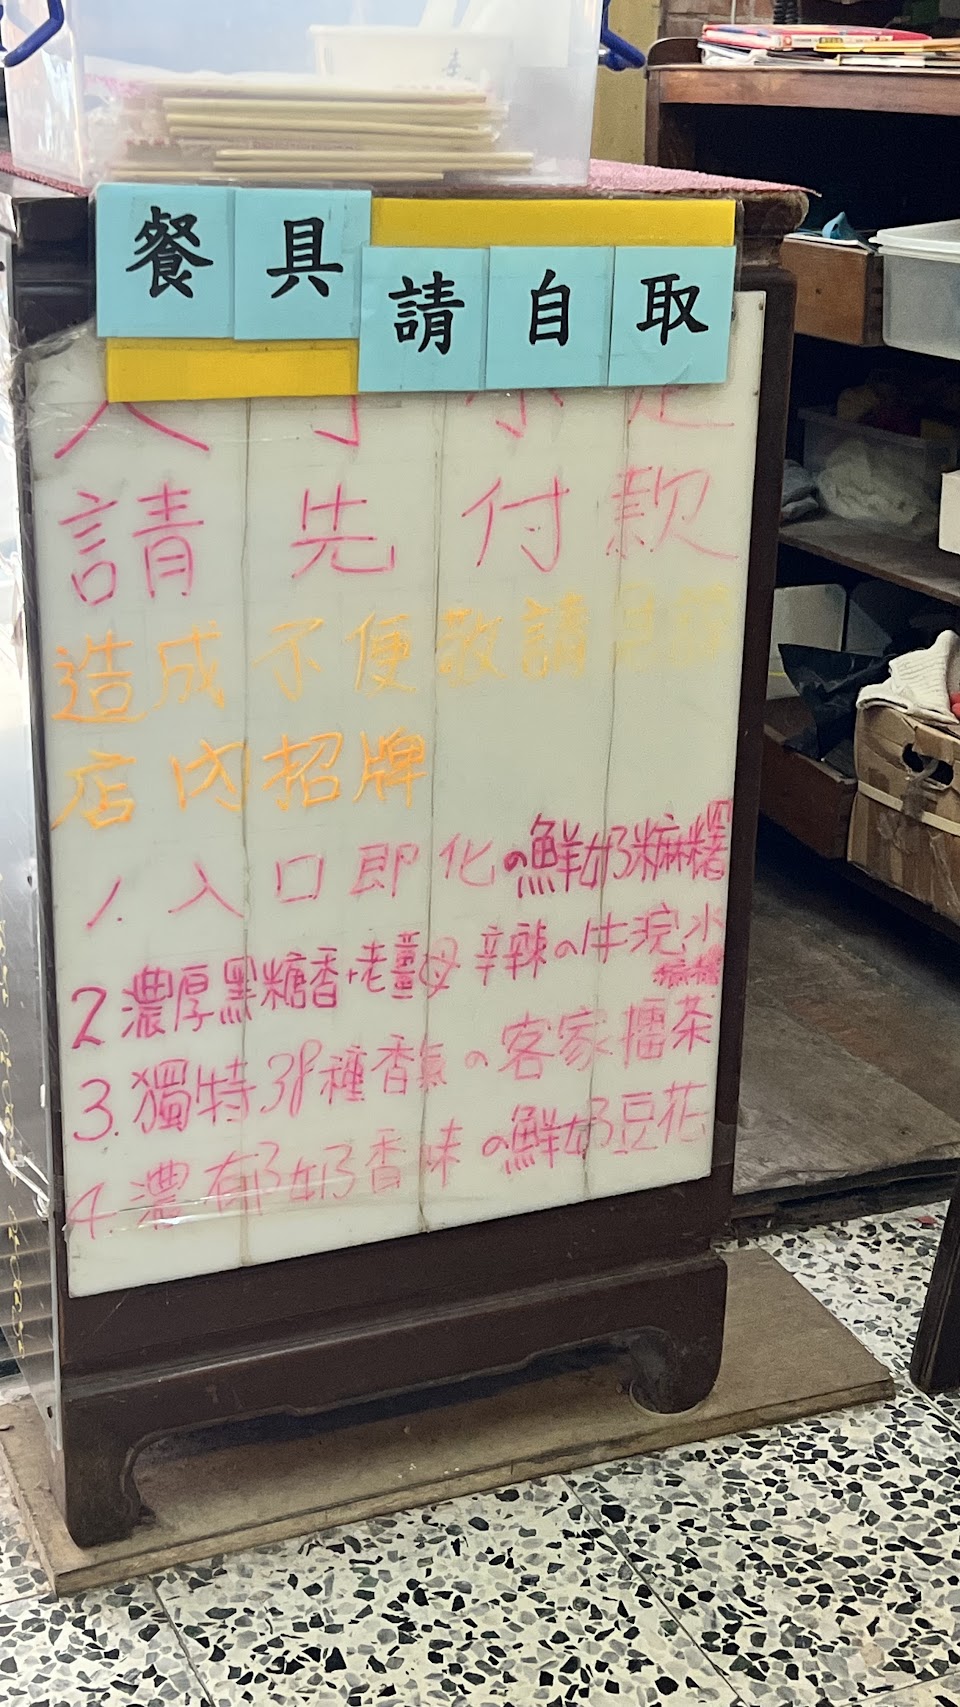 餐具請自取
人手不足
請先付款
造成不便敬請見諒
店內招牌
1.入口即化の鮮奶麻糬
2濃厚黑糖香+老薑母辛辣の牛浣水
麻糬
3.獨特38種香氣の客家擂茶
4.濃郁奶香味の鮮奶豆花